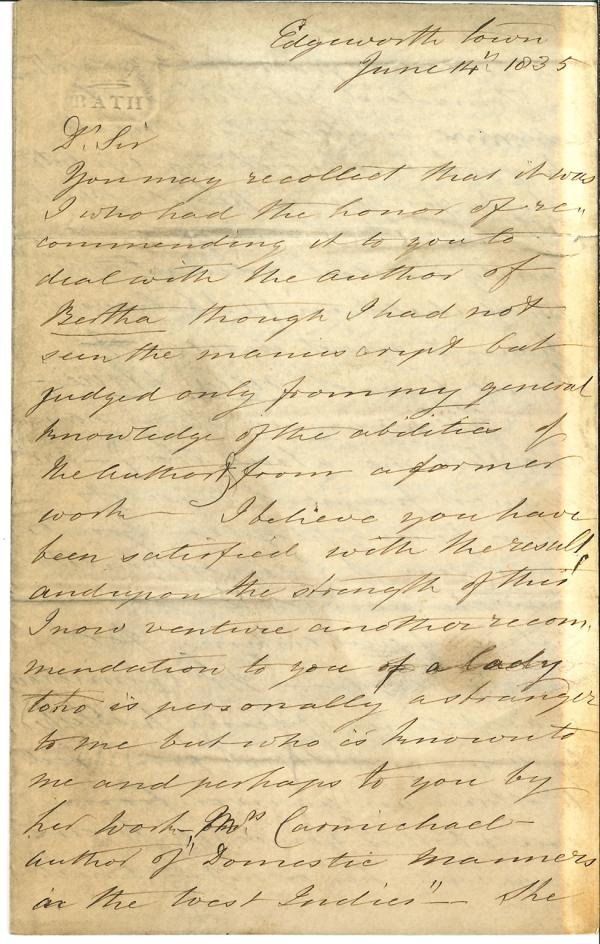 Edgeworth town
June 14th 1835
BATH
Dr. Sir
You may recollect that it was
I who had the honor of re-
commending it to you to
deal with the author of
Bertha though I had not
seen the manuscript but
judged only from my general
knowledge of the abilities of
the author & from a former
work — I believe you have
been satisfied with the result,
and upon the strength of this
I now venture another recom-
mendation to you of a lady
who is personally a stranger
to me but who is known to
me and perhaps to you by
her work — Mrs Carmichael —
author of "Domestic Manners
in the West Indies" — She